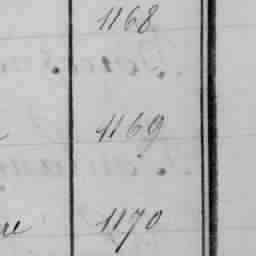 1168
1169
1170